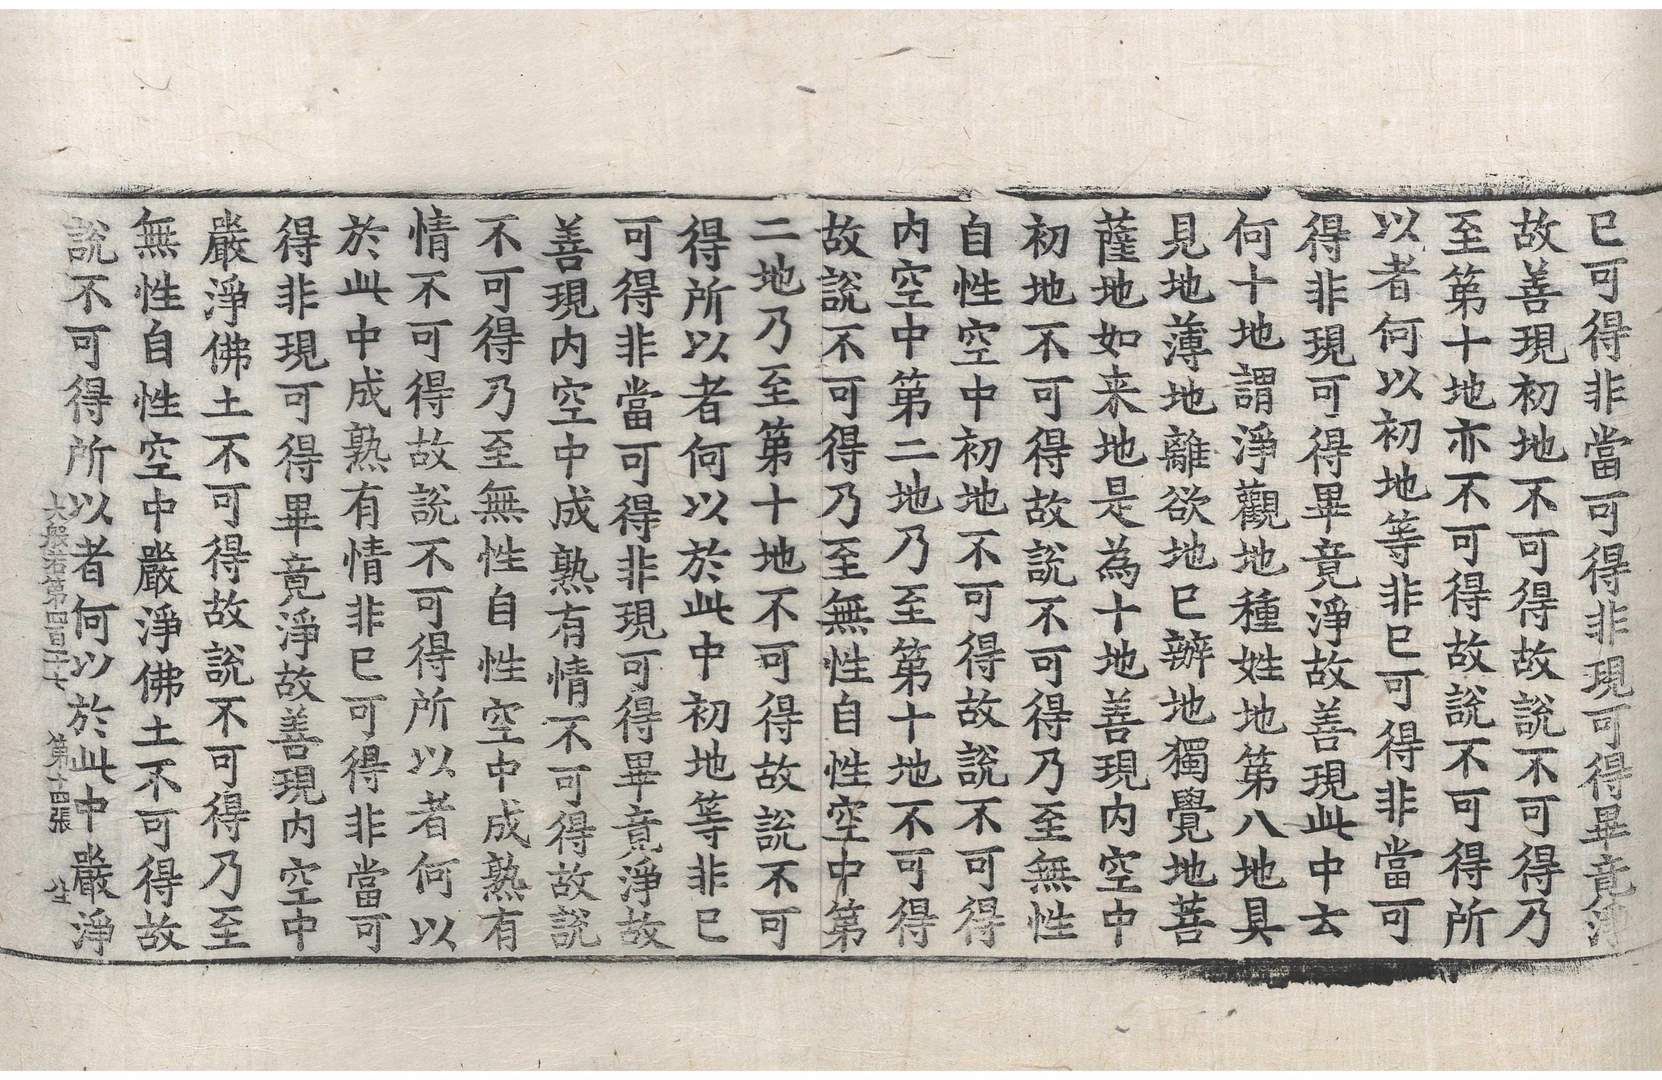 已可得非當可得非現可得畢竟淨
故善現初地不可得故說不可得乃
至第十地亦不可得故說不可得所
以者何以初地等非已可得非當可
得非現可得畢竟淨故善現此中云
何十地謂淨觀地種姓地第八地具
見地薄地離欲地已辦地獨覺地菩
薩地如来地是為十地善現内空中
初地不可得故說不可得乃至無性
自性空中初地不可得故說不可得
内空中第二地乃至第十地不可得
故說不可得乃至無性自性空中第
二地乃至第十地不可得故說不可
得所以者何以於此中初地等非已
可得非當可得非現可得畢竟淨故
善現内空中成熟有情不可得故說
不可得乃至無性自性空中成熟有
情不可得故說不可得所以者何以
於此中成熟有情非已可得非當可
得非現可得畢竟淨故善現内空中
嚴淨佛土不可得故說不可得乃至
無性自性空中嚴淨佛土不可得故
說不可得所以者何以於此中嚴淨
大般若第四百二十 第十四張